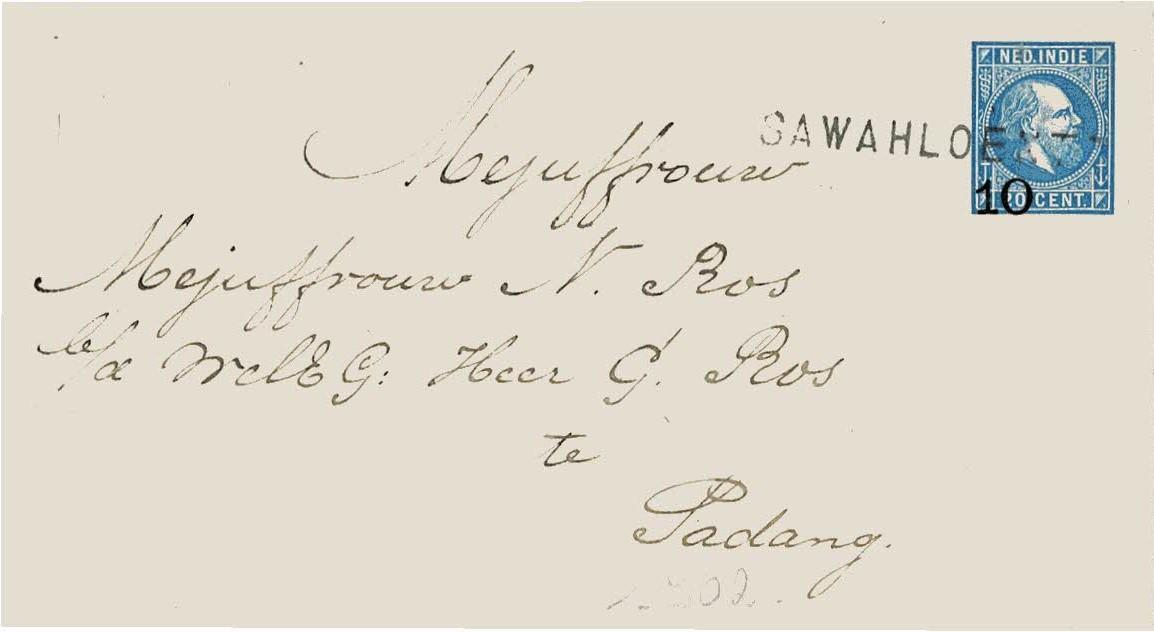 NED. INDIE
SAWAHLOE
10
20 CENT.
Mejuffrouw
Mejuffrouw N. Ros
p/a WelEG: Heer G. Ros
te
Padang.